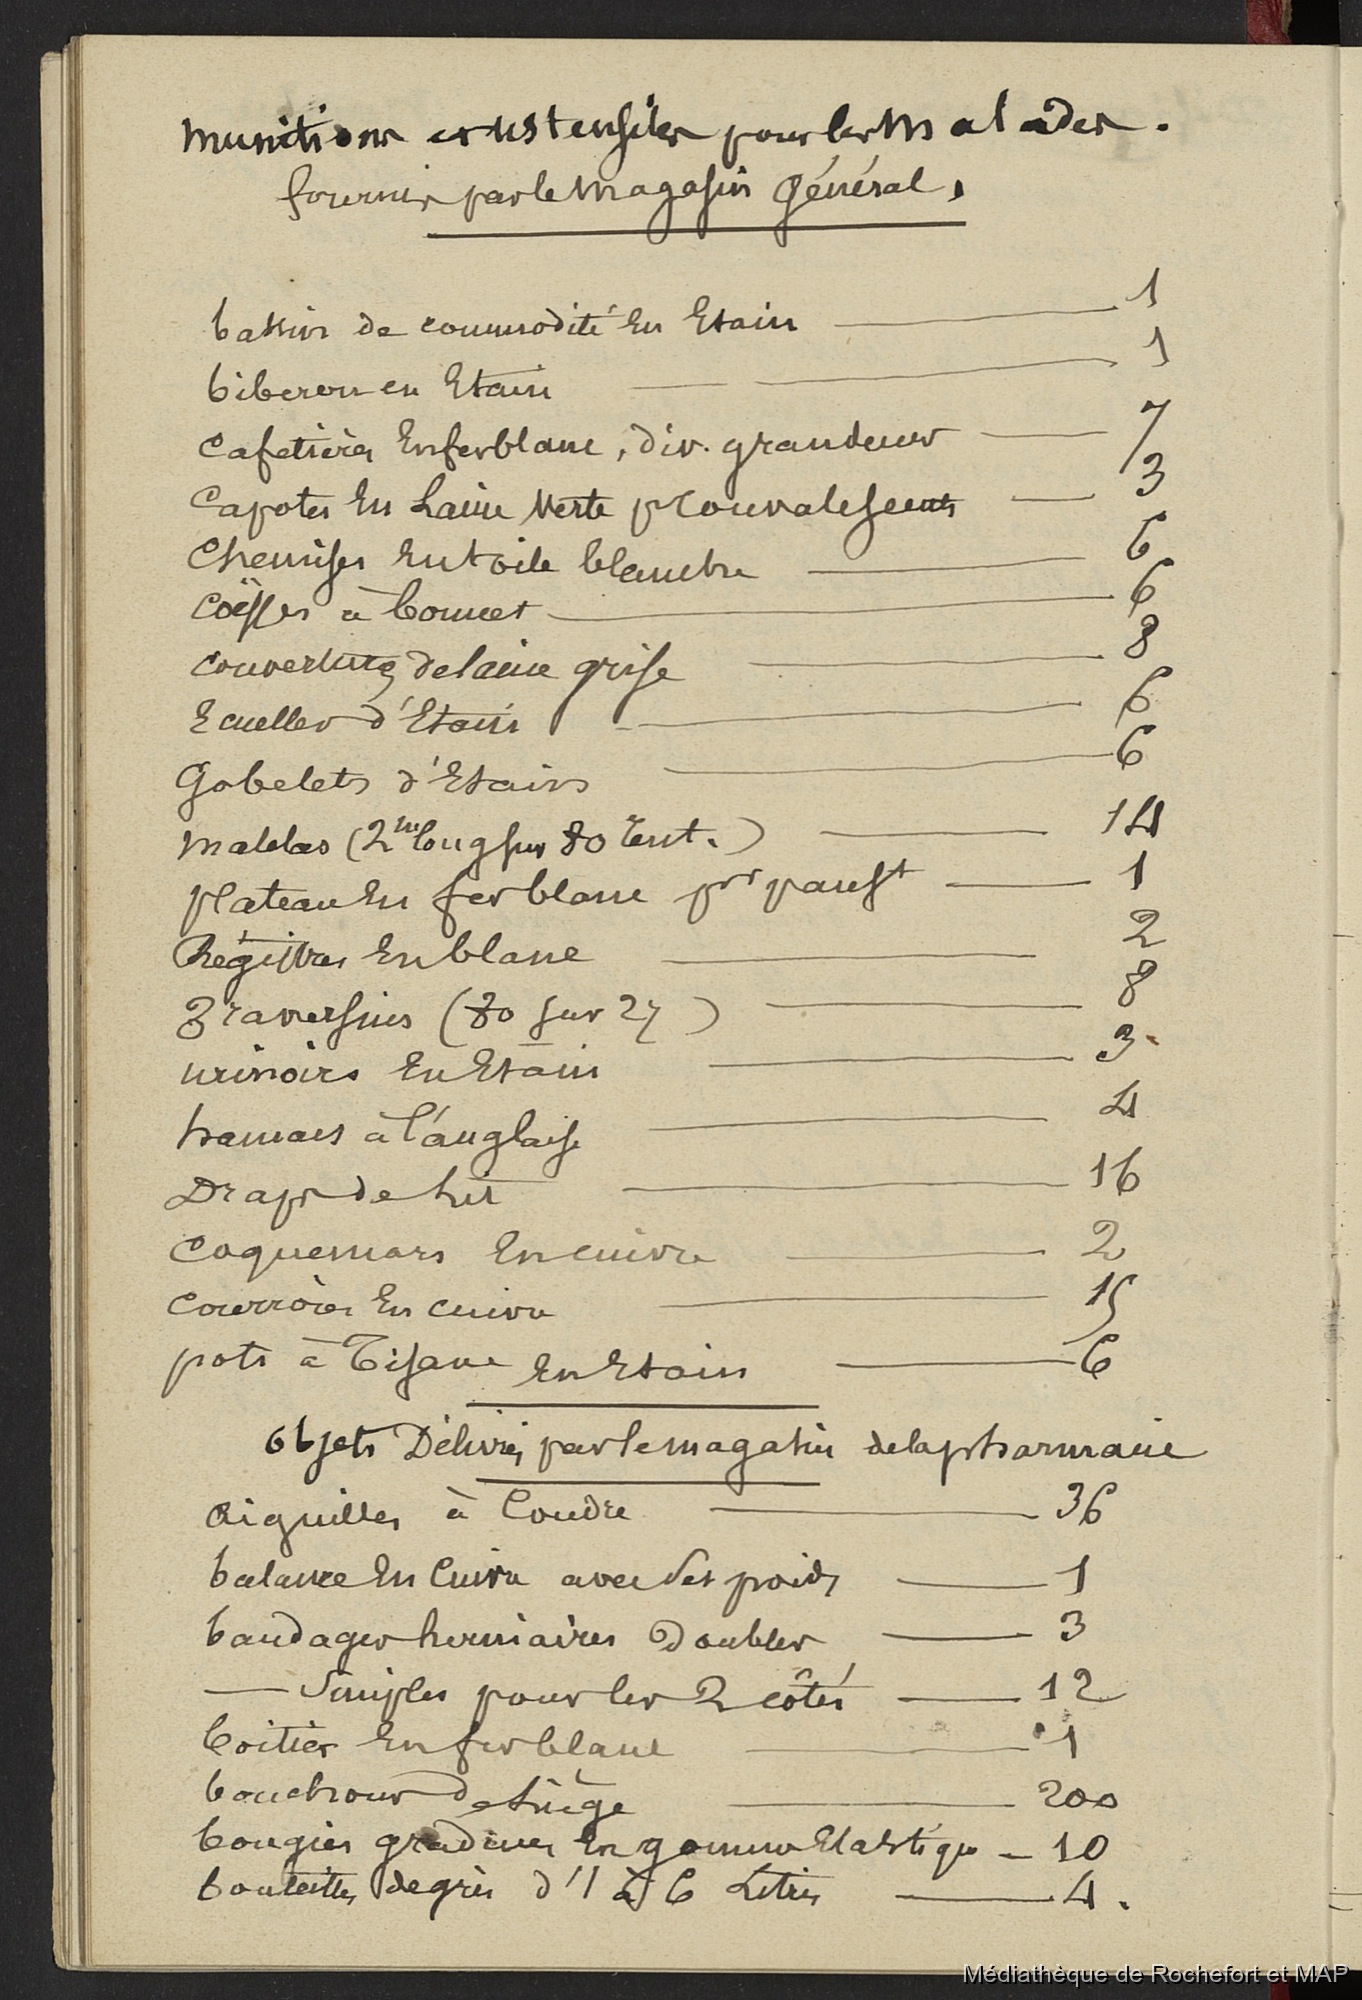 Munitions et ustensiles pour les Malades.
fournis par le Magasin Général,
bassin de commodité En Etain — 1
biberon en Etain — 1
Cafetières En ferblanc, div. grandeurs — 7
Capotes En Laine Verte pr Convalescents — 3
Chemises En toile blanche — 6
Coëffes à bonnet — 6
Couvertures de laine grise — 8
Ecuelles d'Etain — 6
Gobelets d'Etain — 6
Matelas (2m long sur 80 Cent.) — 14
plateau En ferblanc pr pansst — 1
Régistres En blanc — 2
Traversins (80 sur 27) — 8
urinoirs En Etain — 3
hamacs à l'anglaise — 4
Draps de Lit — 16
Coquemars En cuivre — 2
Couvroies En cuivre — 15
pots à Tisane En Etain — 6
Objets Délivrés par le magasin de la pharmacie
aiguilles à Coudre — 36
balance En Cuivre avec Ses poids — 1
bandages herniaires Doubles — 3
— Simples pour les 2 côtés — 12
boitier En fer blanc — 1
bouchons de Liège — 200
bougies graduées En gomme Elastique — 10
bouteilles de grès d'1 à 6 Litres — 4.
Médiathèque de Rochefort et MAP